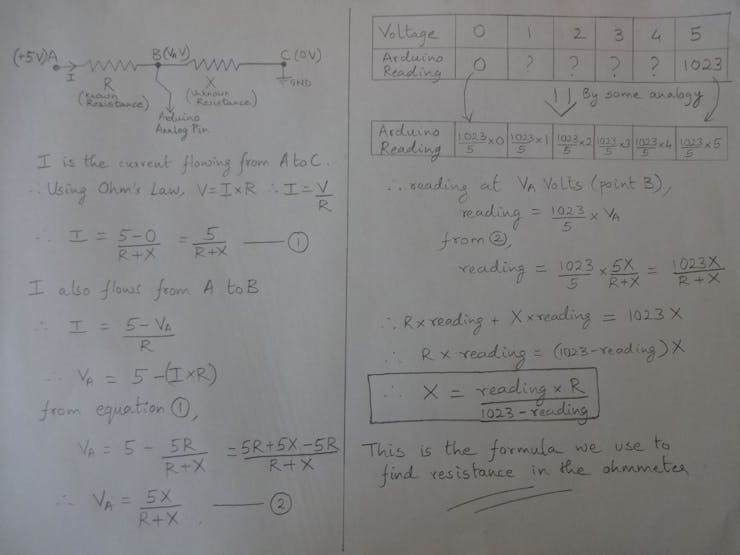 (+5V)A B(VAV) C(0V)
I
R X GND
(known Resistance) (Unknown Resistance)
Arduino
Analog Pin
I is the current flowing from A to C.
∴ Using Ohm's Law, V=I×R ∴ I=V/R
∴ I = 5-0/R+X = 5/R+X —— ①
I also flows from A to B
∴ I = 5-VA/R
∴ VA = 5-(I×R)
from equation ①,
VA = 5 - 5R/R+X = 5R+5X-5R/R+X
∴ VA = 5X/R+X —— ②
Voltage 0 1 2 3 4 5
Arduino Reading 0 ? ? ? ? 1023
By some analogy
Arduino Reading 1023/5×0 1023/5×1 1023/5×2 1023/5×3 1023/5×4 1023/5×5
∴ reading at VA Volts (point B),
reading = 1023/5 × VA
from ②,
reading = 1023/5 × 5X/R+X = 1023X/R+X
∴ R×reading + X×reading = 1023X
∴ R×reading = (1023-reading)X
∴ X = reading × R/1023-reading
This is the formula we use to
find resistance in the ohmmeter